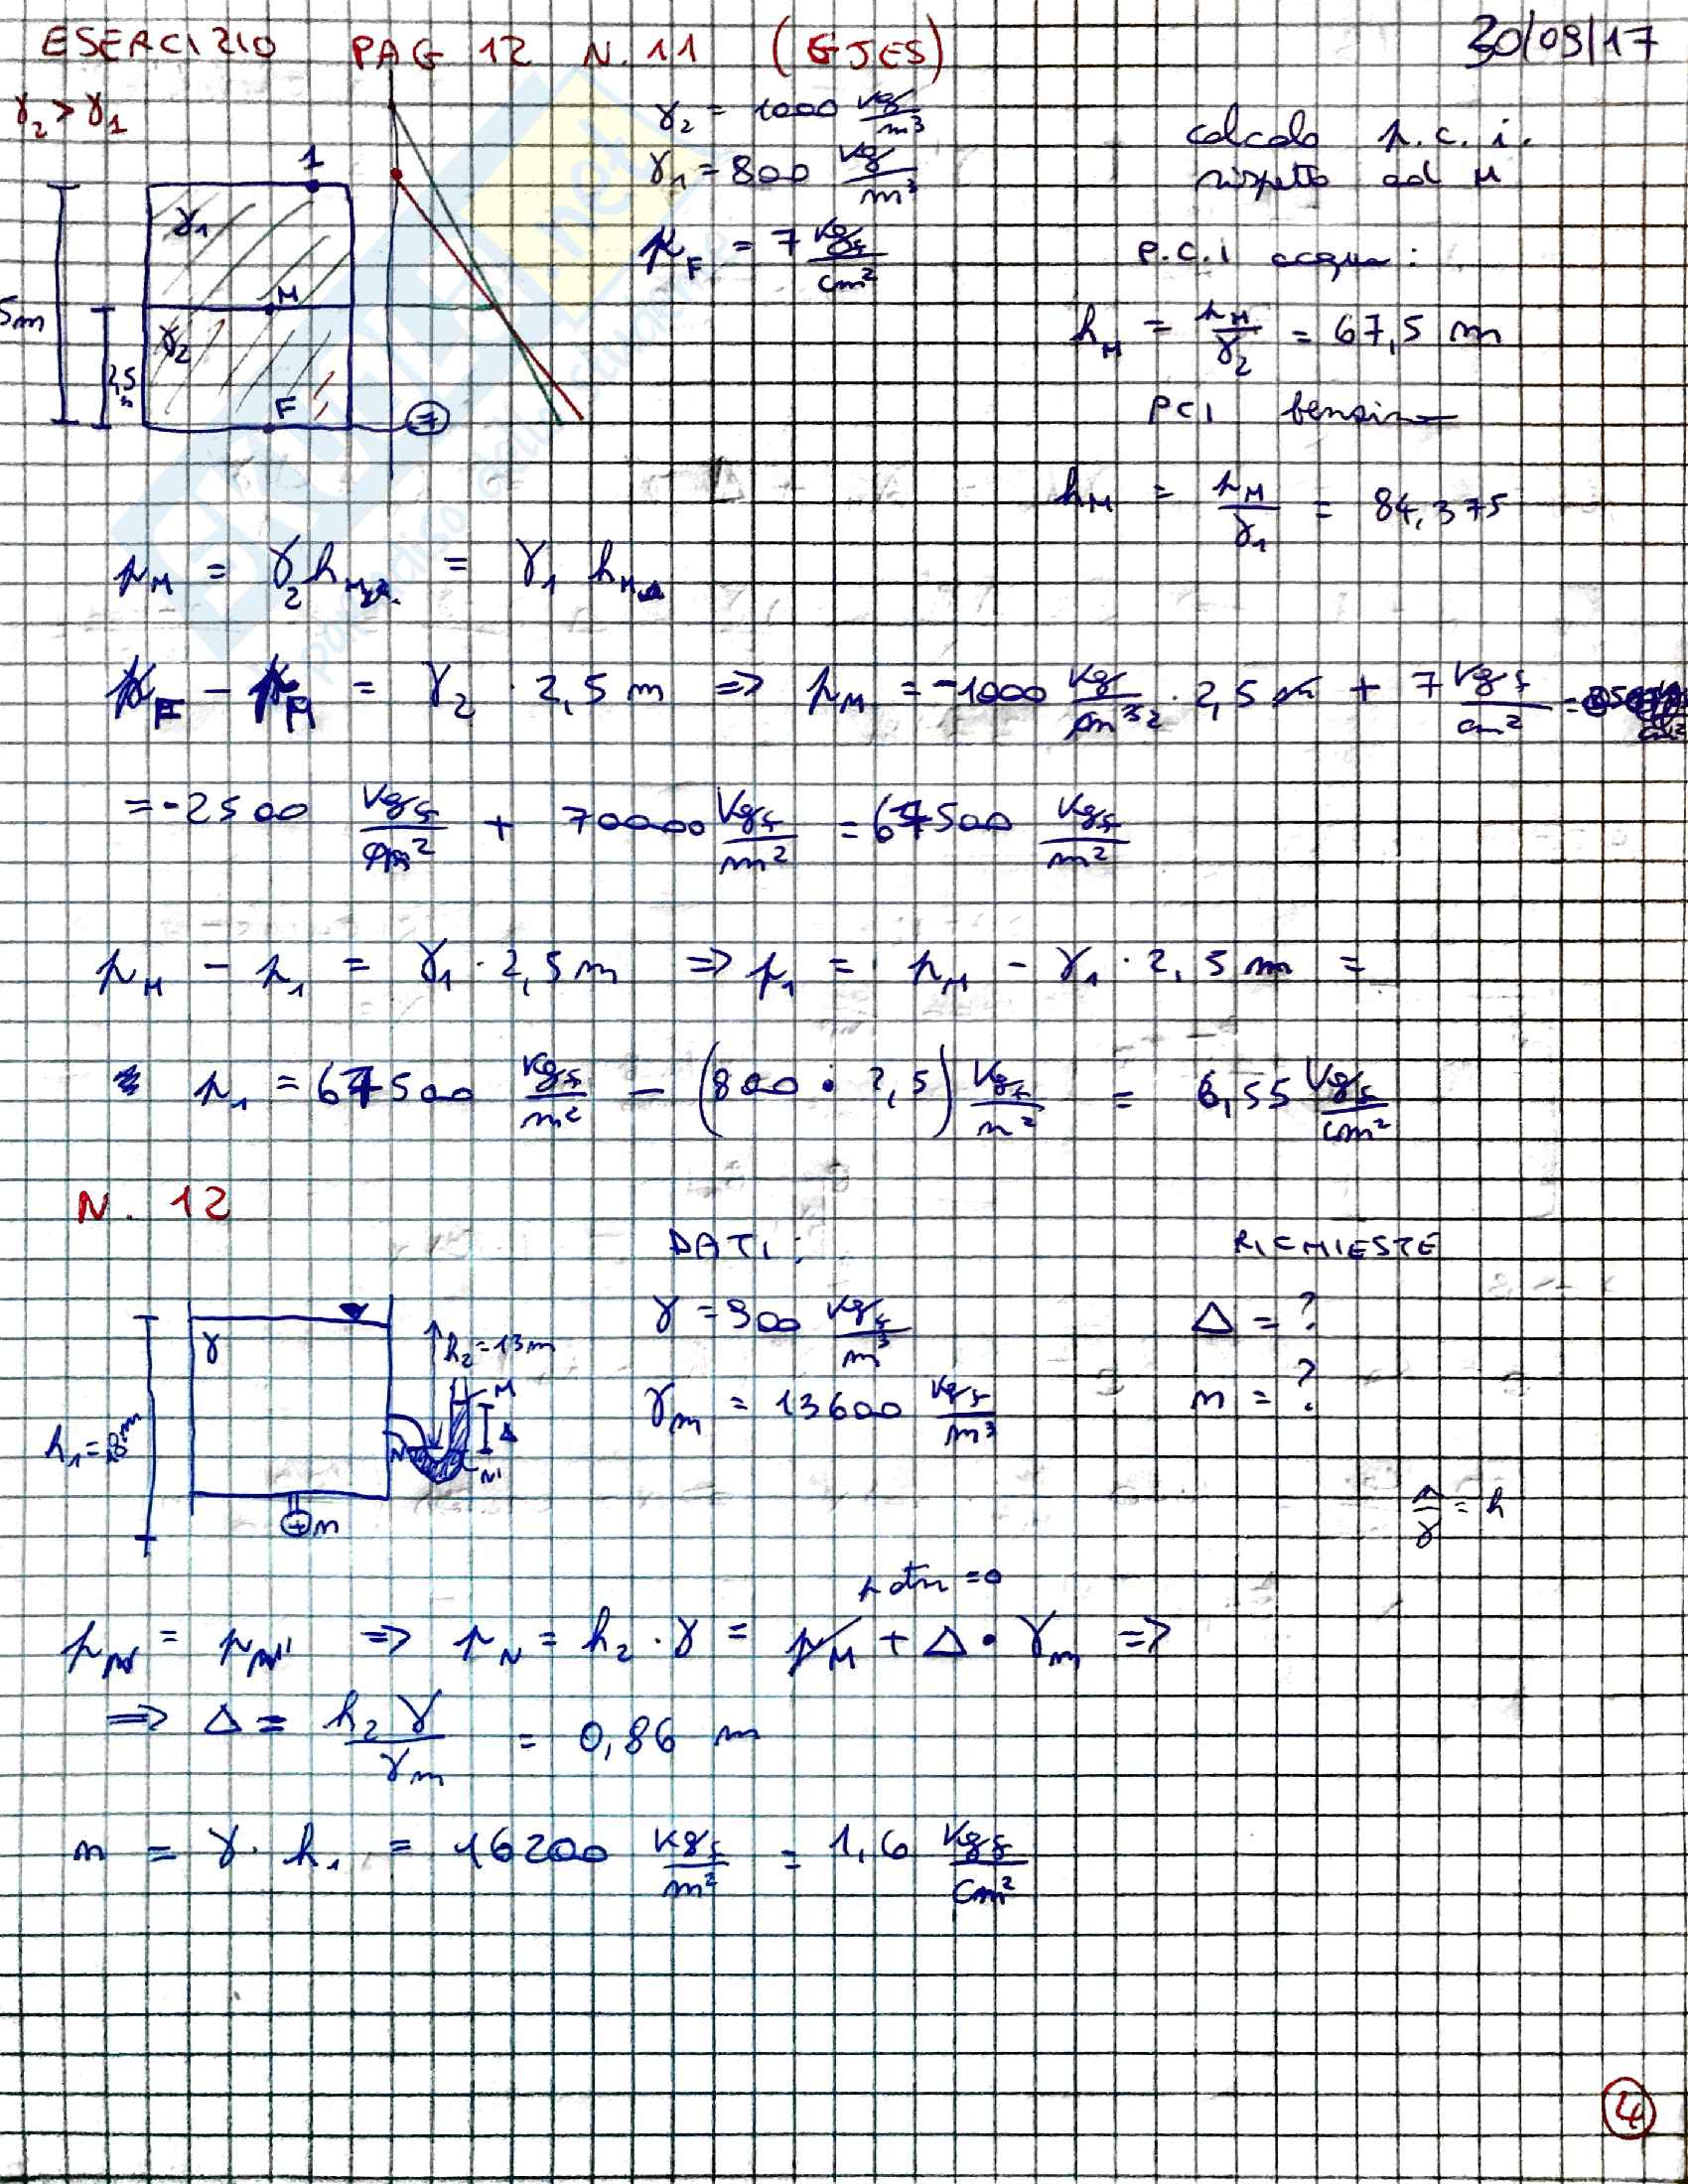 ESERCIZIO PAG 12 N. 11 (GJES)
30/09/17
γ₂ > γ₁
γ₂ = 1000 kg/m³
γ₁ = 800 kg/m³
p_F = 7 kg_f/cm²
calcolo p.c.i.
rispetto ad M
P.C.I acqua:
h_M = p_M/γ₂ = 67,5 m
PCI benzina
h_M = p_M/γ₁ = 84,375
1
γ₁
M
5m
γ₂
2,5 m
F
7
p_M = γ₂ h_M,2 = γ₁ h_M,
p_F - p_M = γ₂ · 2,5 m => p_M = -1000 kg/m³ · 2,5 m + 7 kg_f/cm² =
= -2500 kg_f/m² + 70000 kg_f/m² = 67500 kg_f/m²
p_M - p₁ = γ₁ · 2,5 m => p₁ = p_M - γ₁ · 2,5 m =
p₁ = 67500 kg_f/m² - (800 · 2,5) kg_f/m² = 6,55 kg_f/cm²
N. 12
DATI:
RICHIESTE
γ
h₂ = 13 m
M
Δ
N
N'
h₁ = 18 m
n
γ = 900 kg_f/m³
Δ = ?
γ_m = 13600 kg_f/m³
n = ?
n/γ = h
p atm = 0
p_N = p_N' => p_N = h₂ · γ = p_M + Δ · γ_m =>
=> Δ = h₂ γ/γ_m = 0,86 m
n = γ · h₁ = 16200 kg_f/m² = 1,6 kg_f/cm²
4